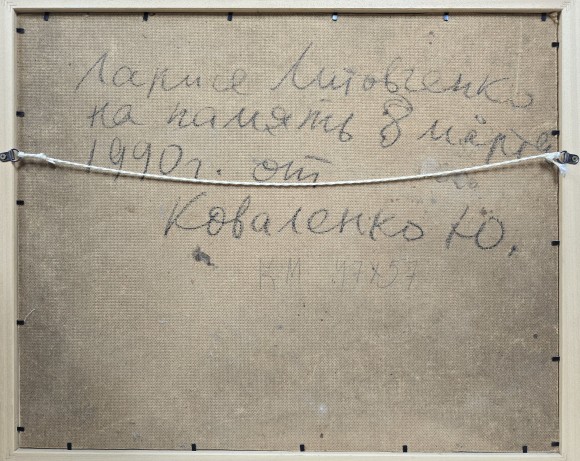 Ларисе Литовченко
на память 8 марта
1990г. от
Коваленко Ю.
КМ 47х57